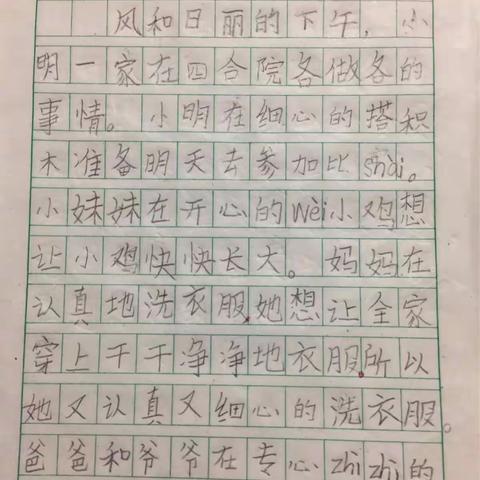 风和日丽的下午，小
明一家在四合院各做各的
事情。小明在细心的搭积
木准备明天去参加比shài。
小妹妹在开心的wèi小鸡想
让小鸡快快长大。妈妈在
认真地洗衣服她想让全家
穿上干干净净地衣服所以
她又认真又细心的洗衣服。
爸爸和爷爷在专心zhìzhì的